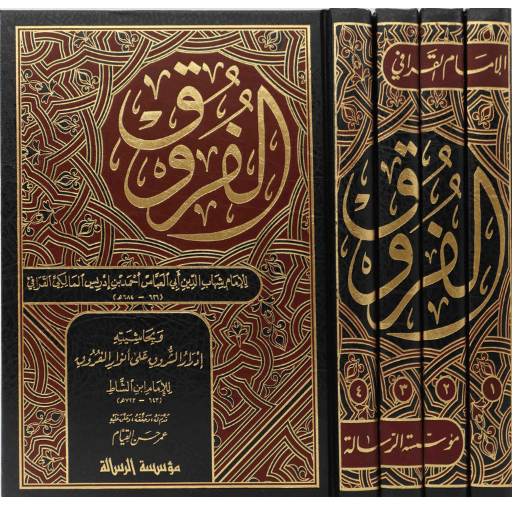 الفروق
للإمام شهاب الدين أبي العباس أحمد بن إدريس المالكي القرافي
(٦٢٦ - ٦٨٤هـ)
وبحاشيته
إدرار الشروق على أنوار الفروق
للإمام ابن الشاط
(٦٤٣ - ٧٢٣هـ)
قدم له وحققه وعلق عليه
عمر حسن القيام
مؤسسة الرسالة
الإمام القرافي
الفروق
١
٢
٣
٤
مؤسسة الرسالة